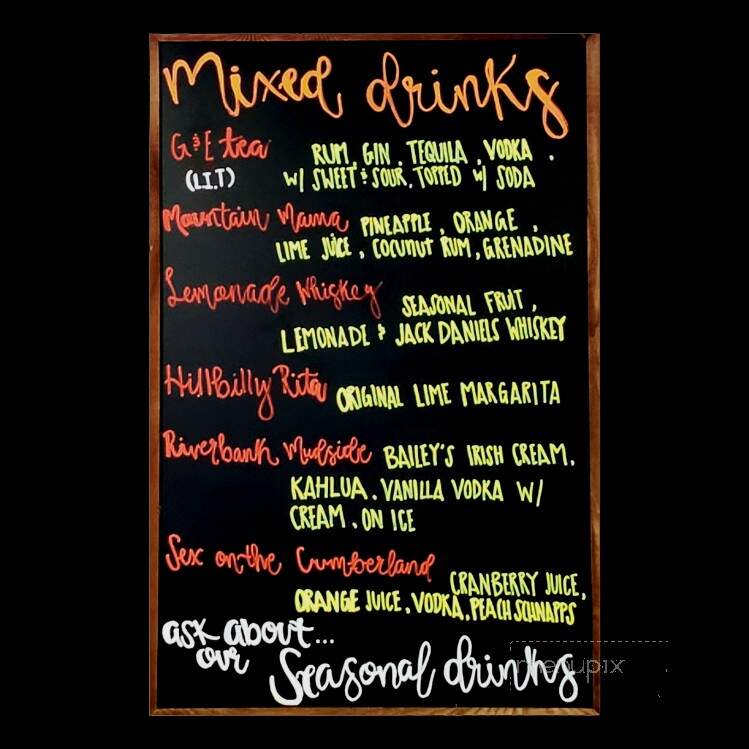 Mixed drinks
G & E tea RUM, GIN, TEQUILA, VODKA,
(L.I.T) W/ SWEET & SOUR, TOPPED W/ SODA
Mountain Mama PINEAPPLE, ORANGE,
LIME JUICE, COCUNUT RUM, GRENADINE
Lemonade Whiskey SEASONAL FRUIT,
LEMONADE & JACK DANIELS WHISKEY
Hillbilly Rita ORIGINAL LIME MARGARITA
Riverbank Mudside BAILEY'S IRISH CREAM,
KAHLUA, VANILLA VODKA W/
CREAM, ON ICE
Sex on the Cumberland CRANBERRY JUICE,
ORANGE JUICE, VODKA, PEACH SCHNAPPS
ask about...
our Seasonal drinks
menupix